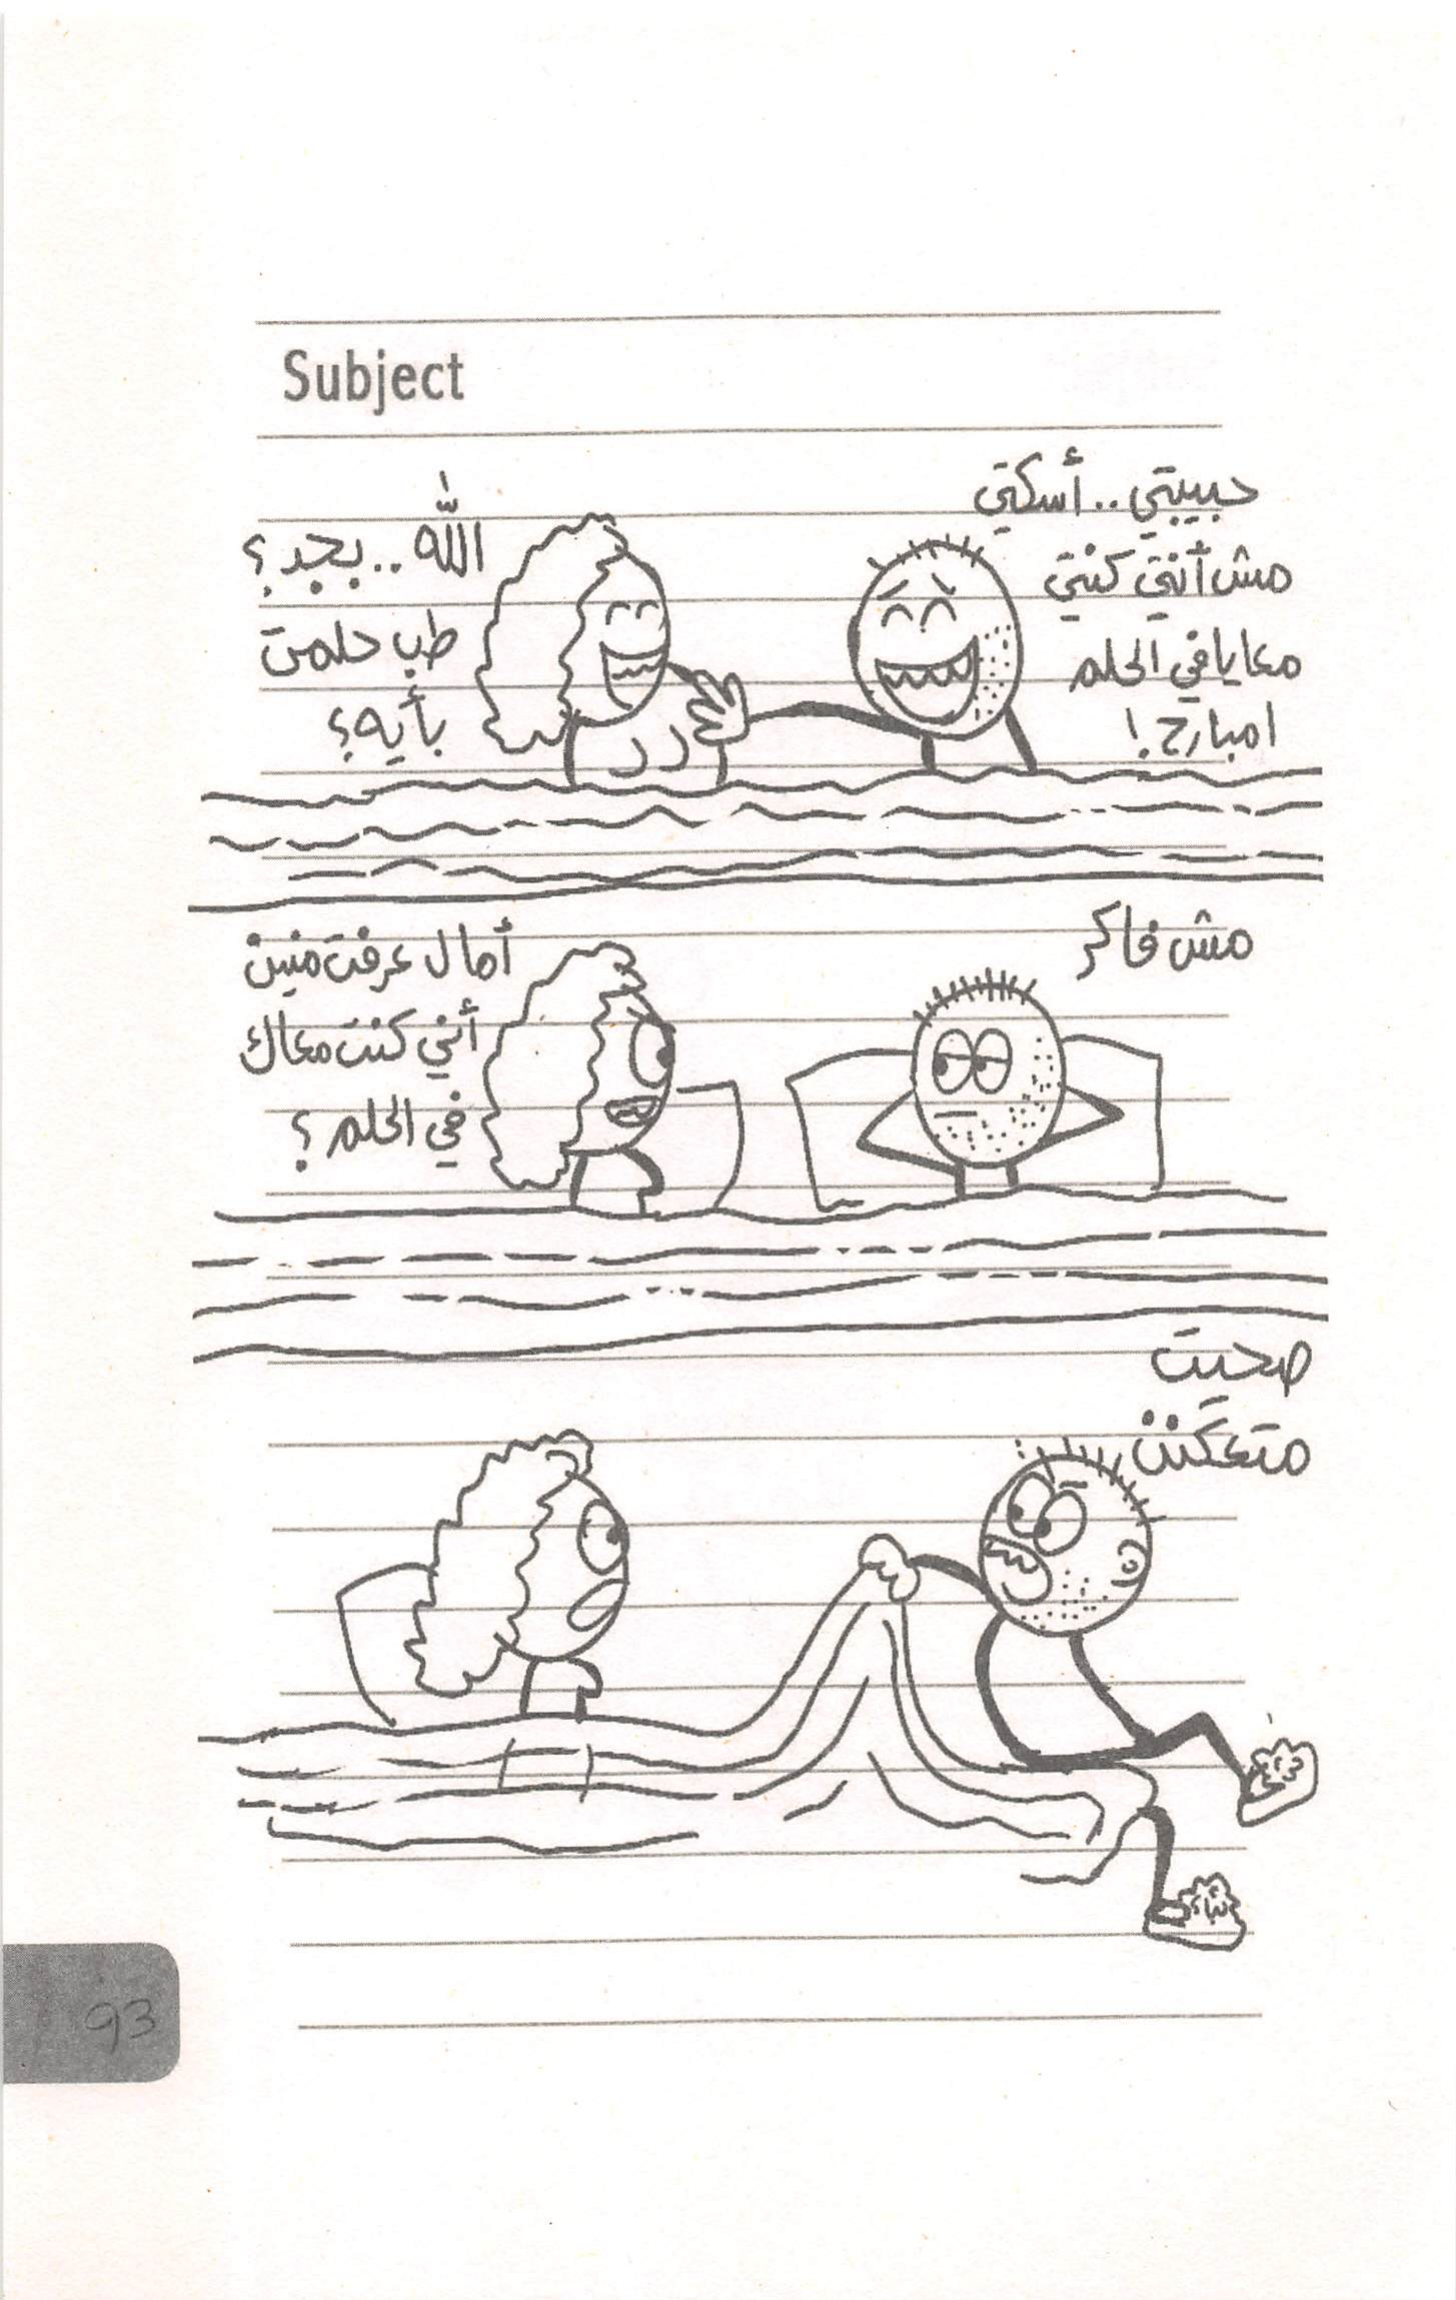 Subject
حبيبتي.. أسكتي
مش أنتي كنتي
معايا في الحلم
امبارح!
الله.. بجد؟
طب حلمت
بأيه؟
مش فاكر
أمال عرفت منين
أني كنت معاك
في الحلم؟
صحيت
متعكنن
93